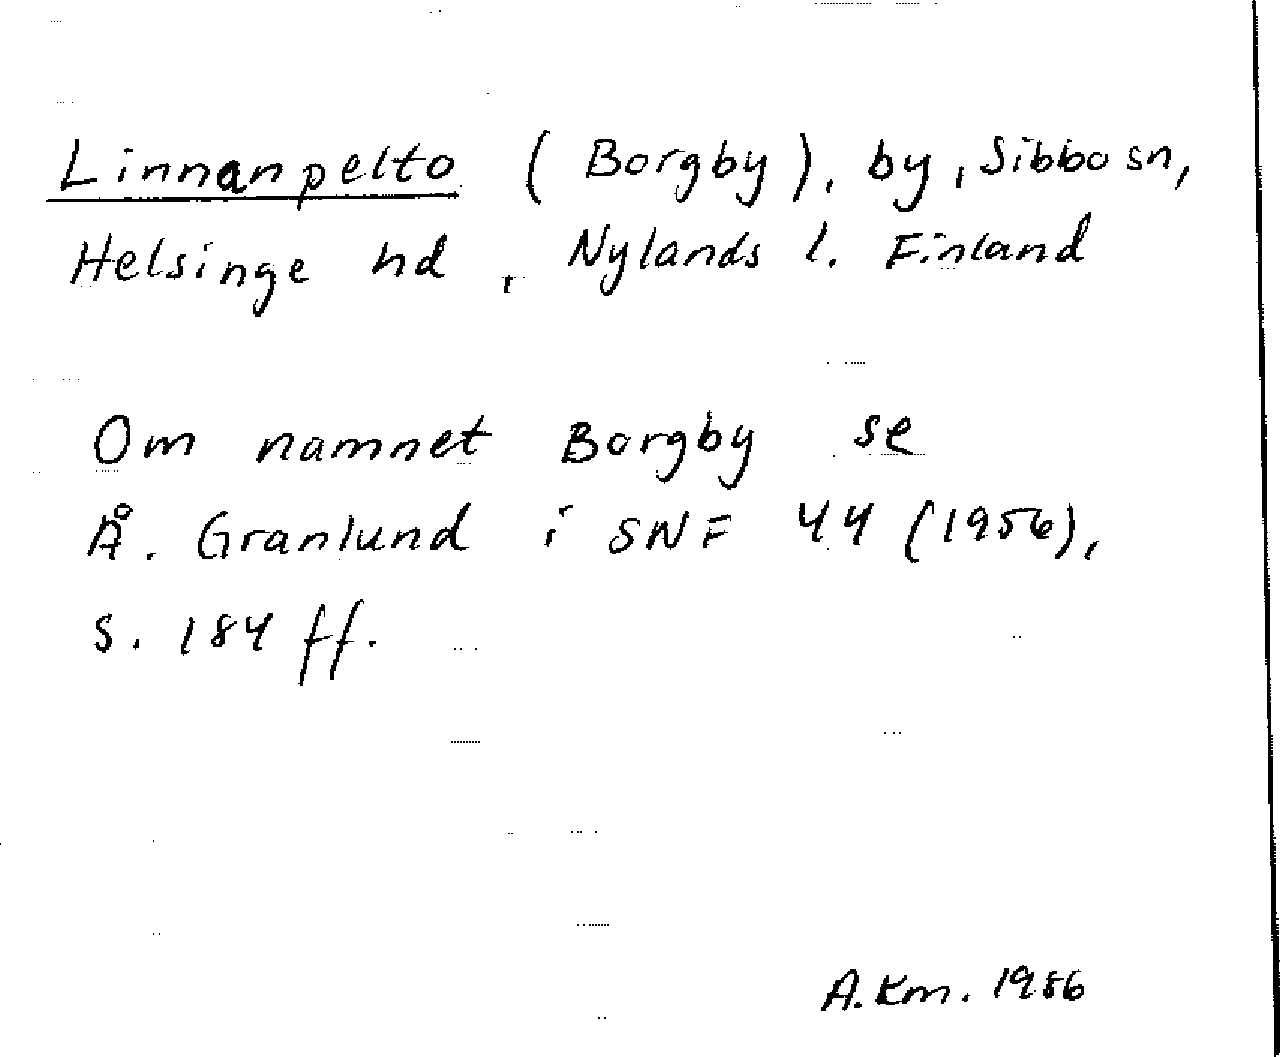 Linnanpelto (Borgby), by, Sibbo sn,
Helsinge hd, Nylands l. Finland
Om namnet Borgby se
Å. Granlund i SNF 44 (1956),
s. 184 ff.
A. Km. 1986